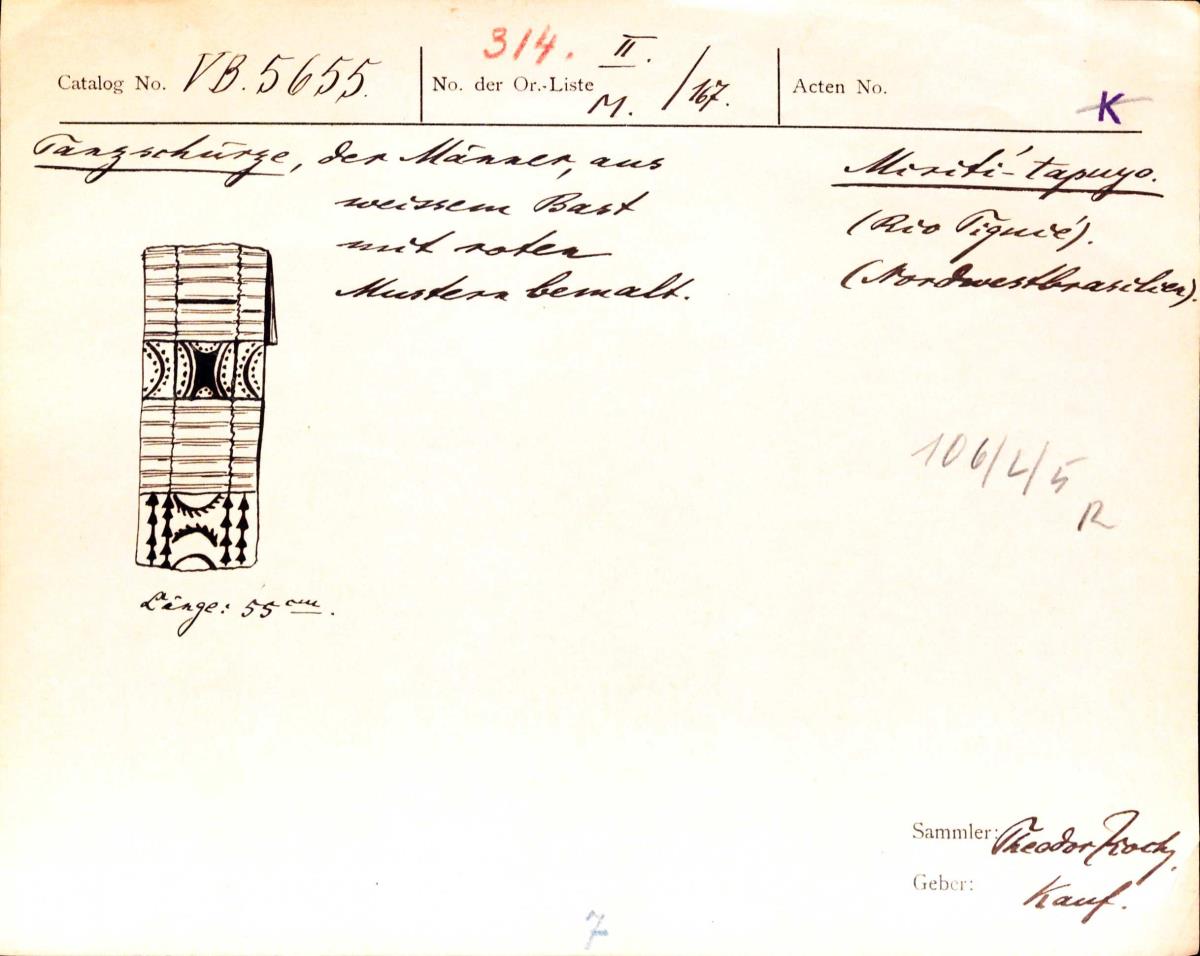 314.
Catalog No. VB. 5655. No. der Or.-Liste II. M. /167. Acten No. K
Tanzschürze, der Männer, aus
weissem Bast
mit roten
Mustern bemalt.
Mirití-tapuyo.
(Rio Tiquié).
(Nordwestbrasilien).
106/2/5
R
Länge: 55 cm.
Sammler: Theodor Koch.
Geber: Kauf.
7